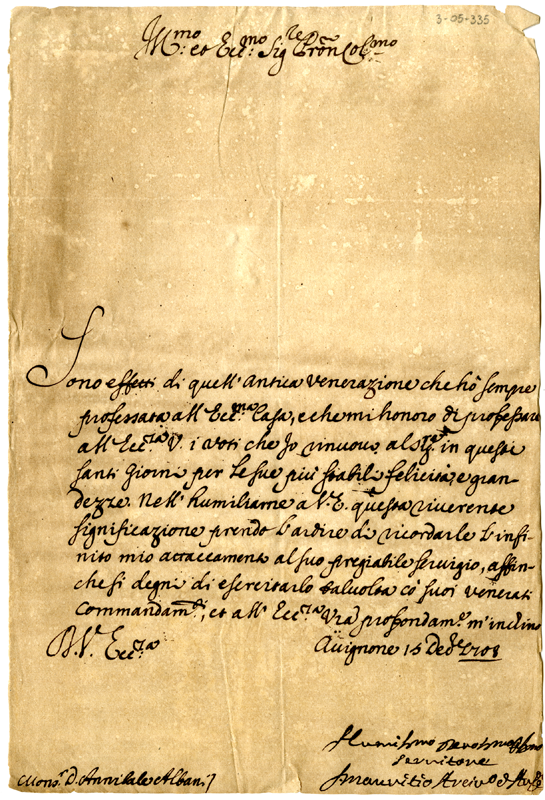 3-05-335
Ill.mo et Ecc.mo Sig.re Prōn Col.mo
Sono effetti di quell'Antica Venerazione che hò sempre
professata all'Ecc.ma Casa, e che mi honoro di professare
all'Ecc.za V. i voti che Io rinuovo al Sig.re in questi
Santi Giorni per le sue più stabili felicità, e gran-
dezze. Nell'humiliarne a V.E. questa riverente
significazione prendo l'ardire di ricordarle l'infi-
nito mio attaccamento al suo pregiabile servigio, affin-
che si degni di esercitarlo talvolta co' suoi venerati
Commandam.ti, et all'Ecc.za Vra profondam.e m'inchino
Di V.a Ecc.za Avignone 15 Dec.e 1708
Humilissimo Devotissimo
Servitore
Mons.r D. Annibale Albani